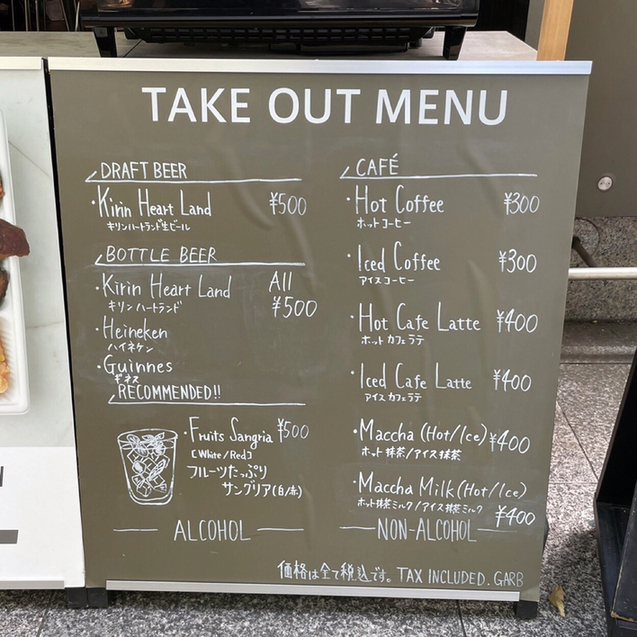 TAKE OUT MENU
DRAFT BEER
・Kirin Heart Land ¥500
キリンハートランド生ビール
BOTTLE BEER
・Kirin Heart Land All ¥500
キリンハートランド
・Heineken
ハイネケン
・Guinnes
ギネス
RECOMMENDED!!
・Fruits Sangria ¥500
[White/Red]
フルーツたっぷり
サングリア(白/赤)
ALCOHOL
CAFÉ
・Hot Coffee ¥300
ホットコーヒー
・Iced Coffee ¥300
アイスコーヒー
・Hot Cafe Latte ¥400
ホットカフェラテ
・Iced Cafe Latte ¥400
アイスカフェラテ
・Maccha (Hot/Ice) ¥400
ホット抹茶/アイス抹茶
・Maccha Milk (Hot/Ice)
ホット抹茶ミルク/アイス抹茶ミルク ¥400
NON-ALCOHOL
価格は全て税込です。TAX INCLUDED. GARB